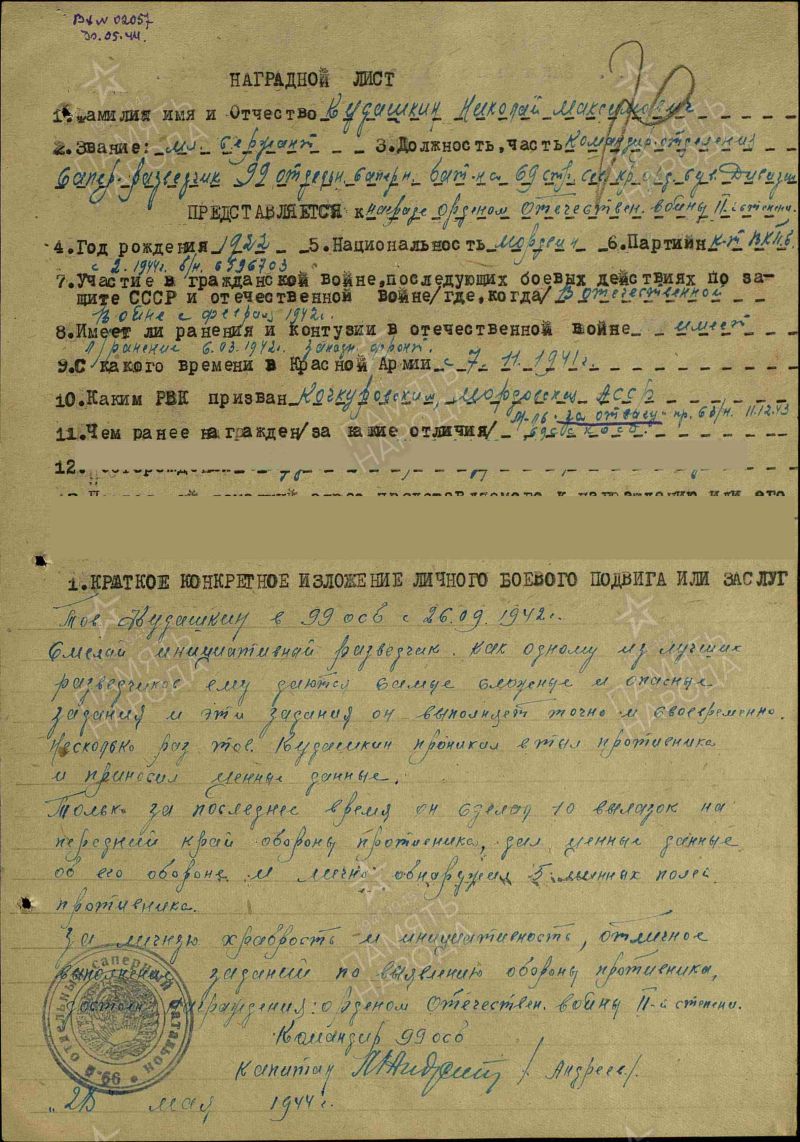 Вх № 02057
30.05.44.
НАГРАДНОЙ ЛИСТ
1. Фамилия имя и Отчество Кудашкин Николай Максимович
2. Звание: мл. Сержант 3. Должность, часть Командир отделения
сапер-разведчик 99 отдельн. саперн. бат-на 69 стр. Сев. кр. озн. див. Дивизии
ПРЕДСТАВЛЯЕТСЯ к награде орденом Отечествен. войны II-степени.
4. Год рождения 1922 5. Национальность Мордвин 6. Партийн к-т ВКП/б
с 2. 1944г. б/н. 6596703
7. Участие в гражданской войне, последующих боевых действиях по за-
щите СССР и отечественной войне/где, когда/ В отечественной
войне с февраля 1942г.
8. Имеет ли ранения и контузии в отечественной войне имеет
1) ранение 6.03.1942г. Западн. фронт.
9. С какого времени в Красной Армии с 7. 11. 1941г.
10. Каким РВК призван Кочкуровским, Мордовская АССР
М-ль "за отвагу" пр. 6б/н. 11.12.43
11. Чем ранее награжден/за какие отличия/ 69 сд
12.
1. КРАТКОЕ КОНКРЕТНОЕ ИЗЛОЖЕНИЕ ЛИЧНОГО БОЕВОГО ПОДВИГА ИЛИ ЗАСЛУГ
Тов. Кудашкин в 99 осв с 26.09. 1942г.
Смелай инициативнай разведчик. как одному из лучших
разведчиков ему даются самые сложные и опасные
задания и эти задания он выполняет точно и своевременно.
Несколько раз тов. Кудашкин проникал в тыл противника
и приносил ценные данные.
Только за последнее время он сделал 10 вылазок на
передний край обороны противника, дал ценные данные
об его обороне и лично обнаружил 5 минных полей
противника.
За личную храбрость и инициативность, отличное
выполнения заданий по выявлению обороны противника,
достоин награждения: орденом Отечествен. войны II-й степени.
Командир 99 осв
Капитан /Андреев/.
"25" мая 1944г.
отдельный саперный батальон
99-й
ПАМЯТЬ НАРОДА